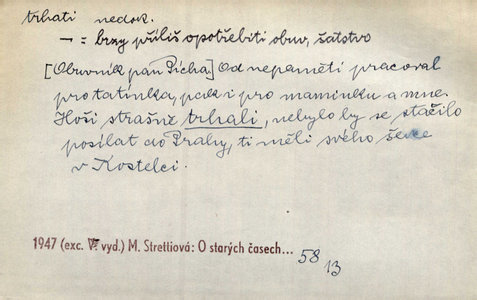 trhati nedok.
→ : brzy příliš opotřebiti obuv, šatstvo
[Obuvník pan Pícha] Od nepaměti pracoval
pro tatínka, pak i pro maminku a mne.
Hoši strašně trhali, nebylo by se stačilo
posílat do Prahy, ti měli svého ševce
v Kostelci.
1947 (exc. V. vyd.) M. Strettiová: O starých časech... 58
13